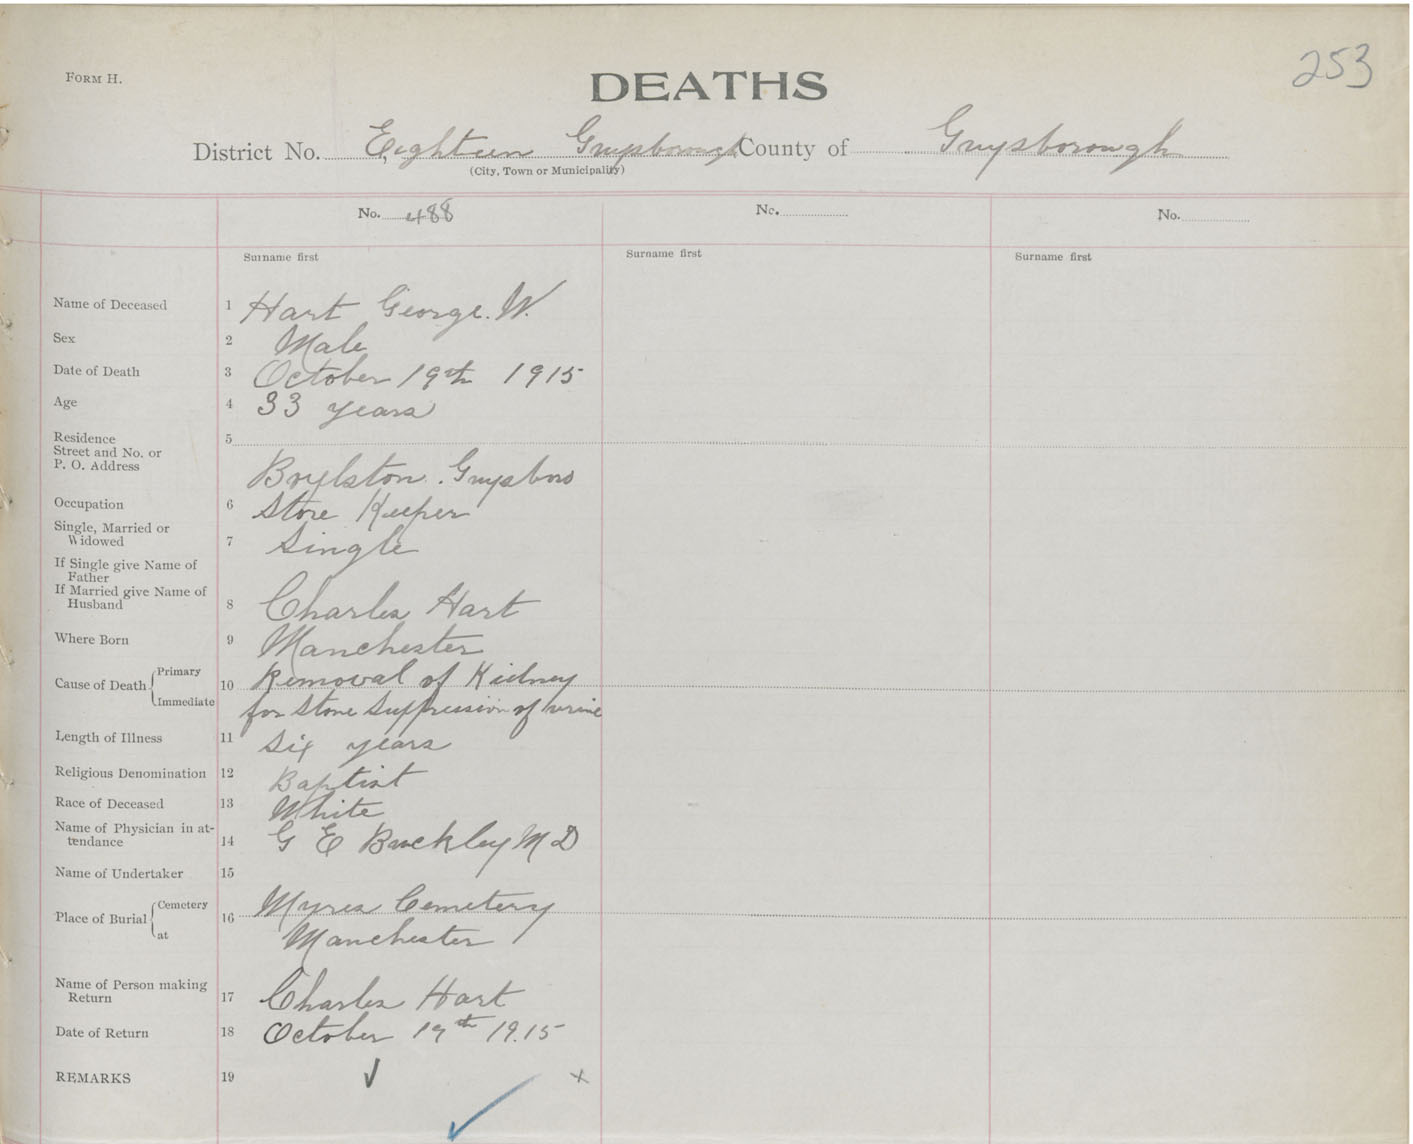 253
FORM H.
DEATHS
District No. Eighteen Guysborough County of Guysborough
(City, Town or Municipality)
No. 488 No. No.
Surname first Surname first Surname first
Name of Deceased 1 Hart George. W.
Sex 2 Male
Date of Death 3 October 19th 1915
Age 4 33 years
Residence 5
Street and No. or
P. O. Address Boylston. Guysboro
Occupation 6 Store Keeper
Single, Married or
Widowed 7 Single
If Single give Name of
Father
If Married give Name of
Husband 8 Charles Hart
Where Born 9 Manchester
Cause of Death Primary 10 Removal of Kidney
Immediate for Stone Suppression of Urine
Length of Illness 11 Six years
Religious Denomination 12 Baptist
Race of Deceased 13 White
Name of Physician in at-
tendance 14 G E Buckley M D
Name of Undertaker 15
Place of Burial Cemetery 16 Myres Cemetery
at Manchester
Name of Person making
Return 17 Charles Hart
Date of Return 18 October 19th 19.15
REMARKS 19